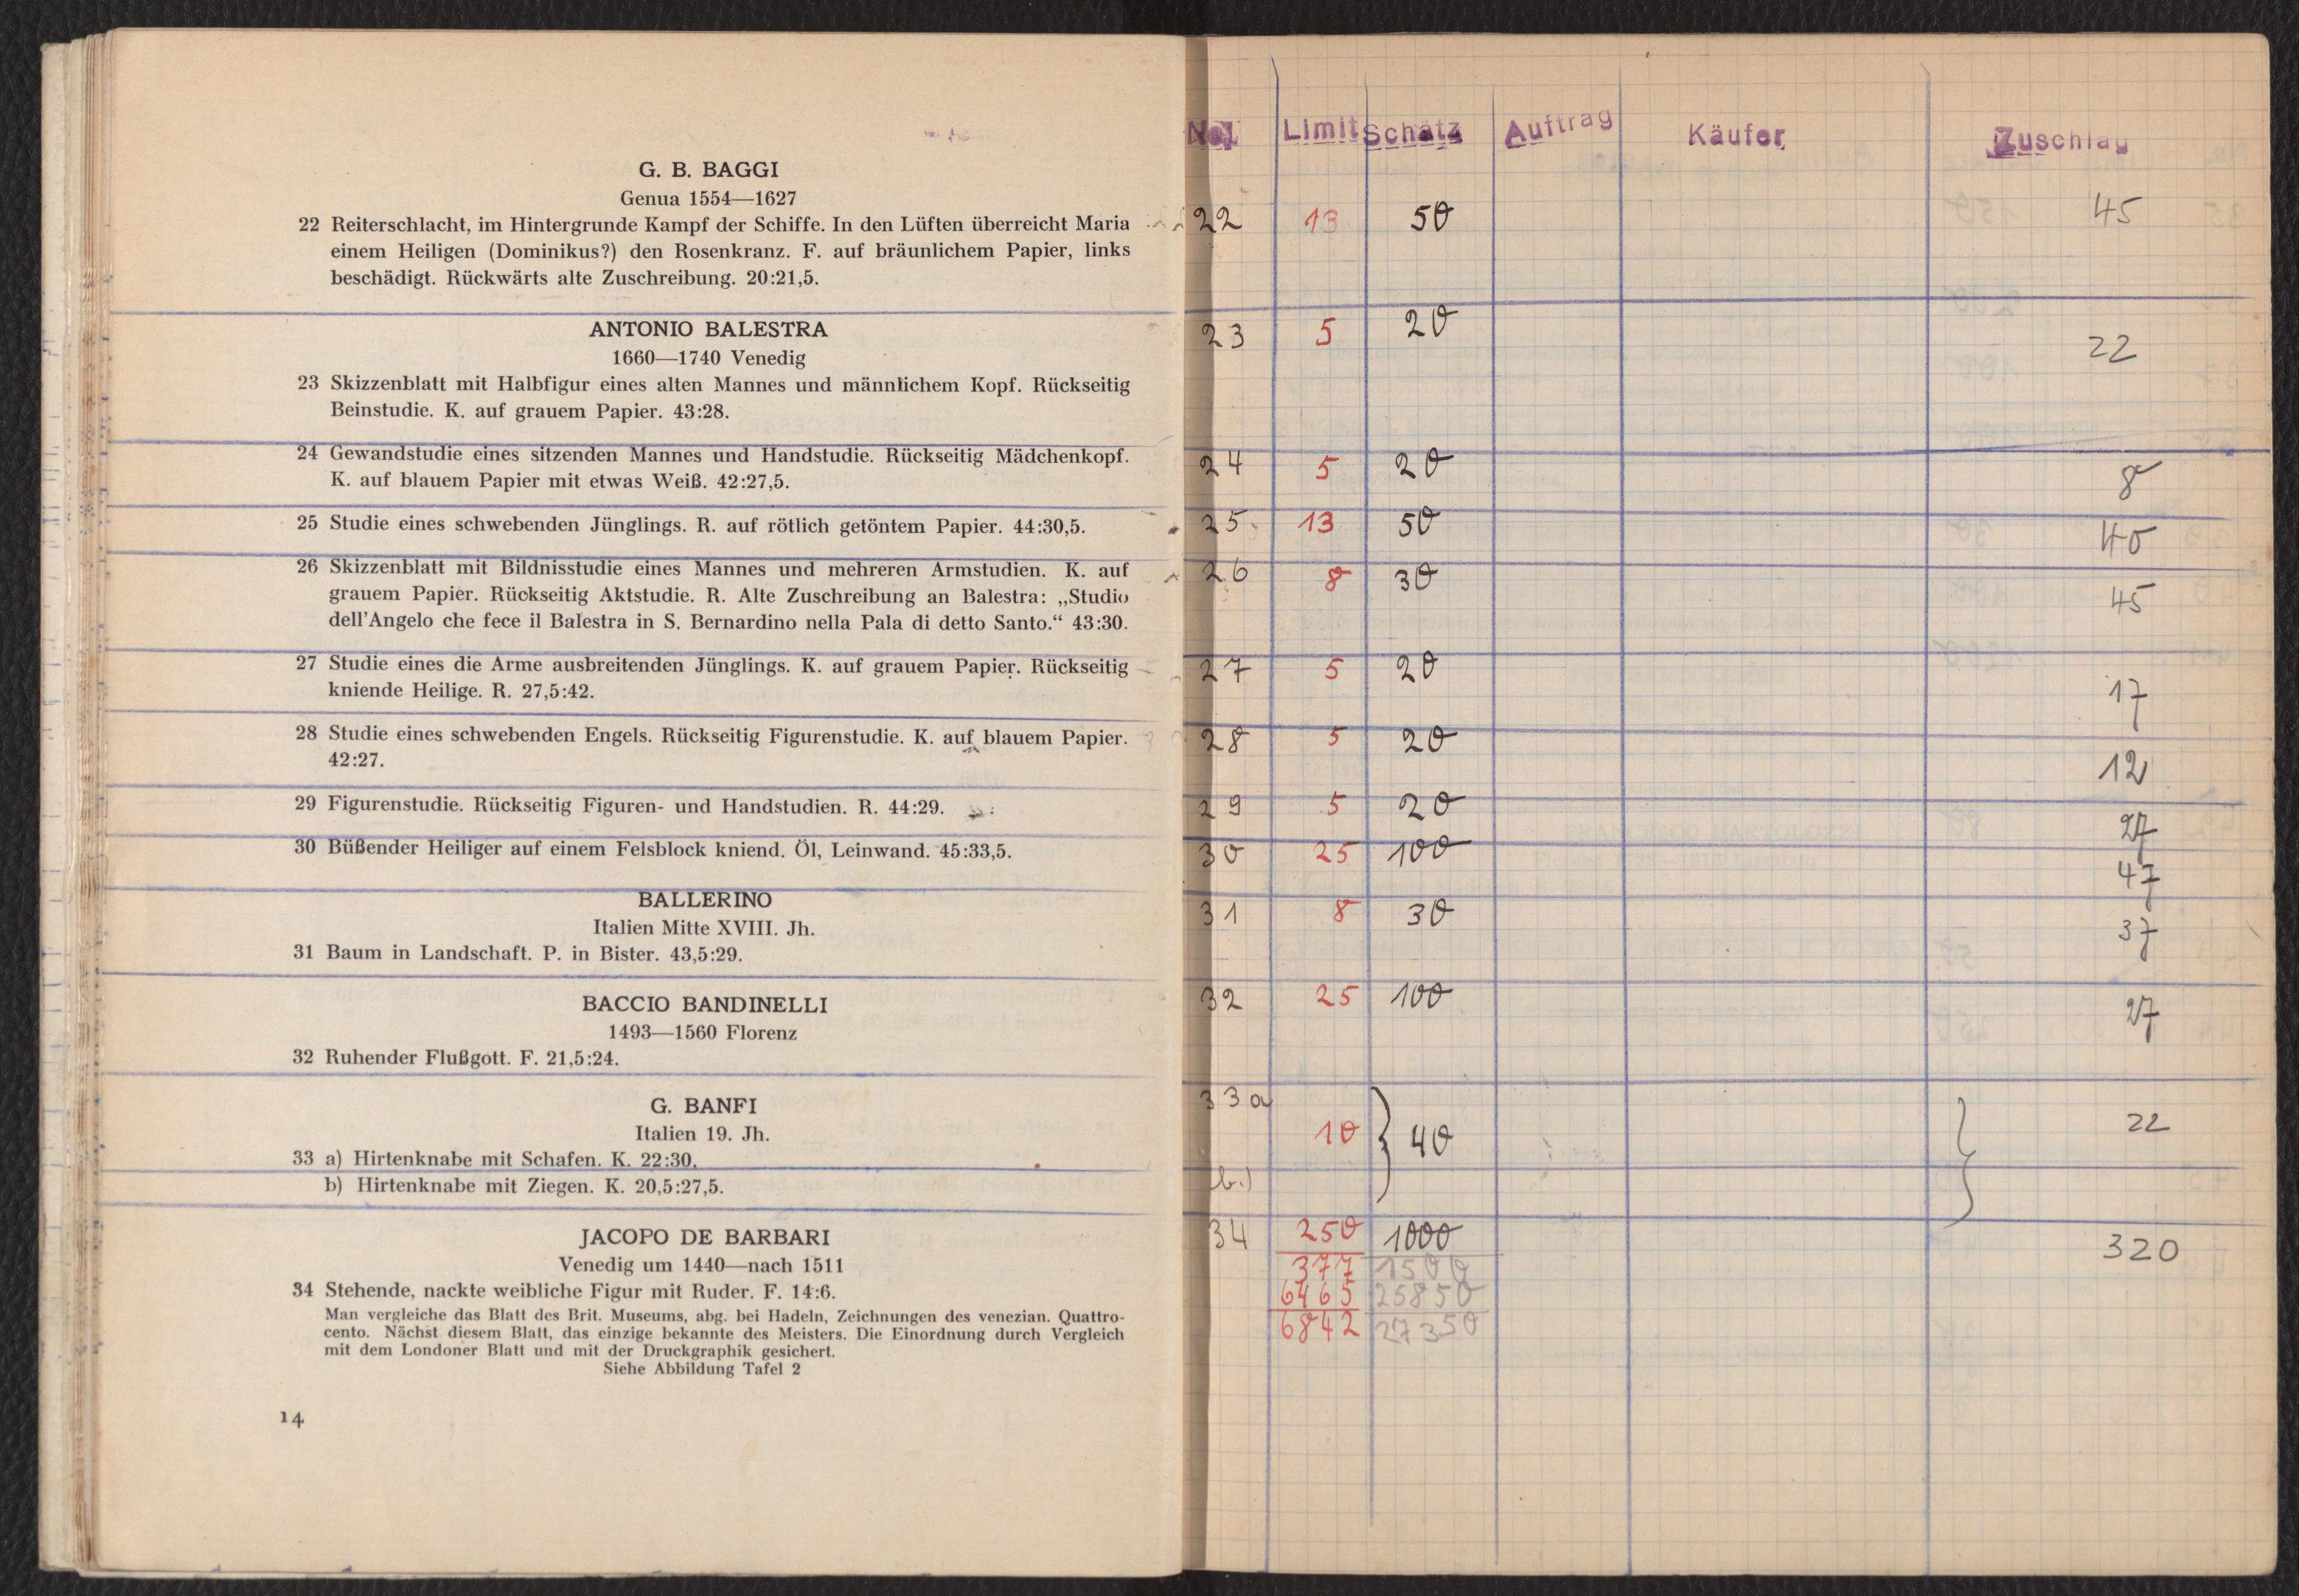 G. B. BAGGI
Genua 1554—1627
22 Reiterschlacht, im Hintergrunde Kampf der Schiffe. In den Lüften überreicht Maria
einem Heiligen (Dominikus?) den Rosenkranz. F. auf bräunlichem Papier, links
beschädigt. Rückwärts alte Zuschreibung. 20:21,5.
ANTONIO BALESTRA
1660—1740 Venedig
23 Skizzenblatt mit Halbfigur eines alten Mannes und männlichem Kopf. Rückseitig
Beinstudie. K. auf grauem Papier. 43:28.
24 Gewandstudie eines sitzenden Mannes und Handstudie. Rückseitig Mädchenkopf.
K. auf blauem Papier mit etwas Weiß. 42:27,5.
25 Studie eines schwebenden Jünglings. R. auf rötlich getöntem Papier. 44:30,5.
26 Skizzenblatt mit Bildnisstudie eines Mannes und mehreren Armstudien. K. auf
grauem Papier. Rückseitig Aktstudie. R. Alte Zuschreibung an Balestra: „Studio
dell'Angelo che fece il Balestra in S. Bernardino nella Pala di detto Santo.“ 43:30.
27 Studie eines die Arme ausbreitenden Jünglings. K. auf grauem Papier. Rückseitig
kniende Heilige. R. 27,5:42.
28 Studie eines schwebenden Engels. Rückseitig Figurenstudie. K. auf blauem Papier.
42:27.
29 Figurenstudie. Rückseitig Figuren- und Handstudien. R. 44:29.
30 Büßender Heiliger auf einem Felsblock kniend. Öl, Leinwand. 45:33,5.
BALLERINO
Italien Mitte XVIII. Jh.
31 Baum in Landschaft. P. in Bister. 43,5:29.
BACCIO BANDINELLI
1493—1560 Florenz
32 Ruhender Flußgott. F. 21,5:24.
G. BANFI
Italien 19. Jh.
33 a) Hirtenknabe mit Schafen. K. 22:30.
b) Hirtenknabe mit Ziegen. K. 20,5:27,5.
JACOPO DE BARBARI
Venedig um 1440—nach 1511
34 Stehende, nackte weibliche Figur mit Ruder. F. 14:6.
Man vergleiche das Blatt des Brit. Museums, abg. bei Hadeln, Zeichnungen des venezian. Quattro-
cento. Nächst diesem Blatt, das einzige bekannte des Meisters. Die Einordnung durch Vergleich
mit dem Londoner Blatt und mit der Druckgraphik gesichert.
Siehe Abbildung Tafel 2
14
Limit Schätz Auftrag Käufer Zuschlag
22 13 50 45
23 5 20 22
24 5 20 8
25 13 50 40
26 8 30 45
27 5 20 17
28 5 20 12
29 5 20 27
30 25 100 47
31 8 30 37
32 25 100 27
33 a
10 40 22
b.)
34 250 1000 320
377 1500
6465 25850
6842 27350